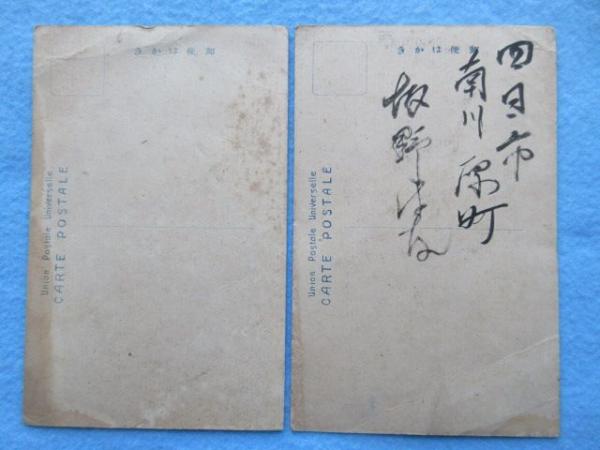 郵便はかき
Union Postale Universelle
CARTE POSTALE
郵便はかき
Union Postale Universelle
CARTE POSTALE
四日市
南川原町
坂野